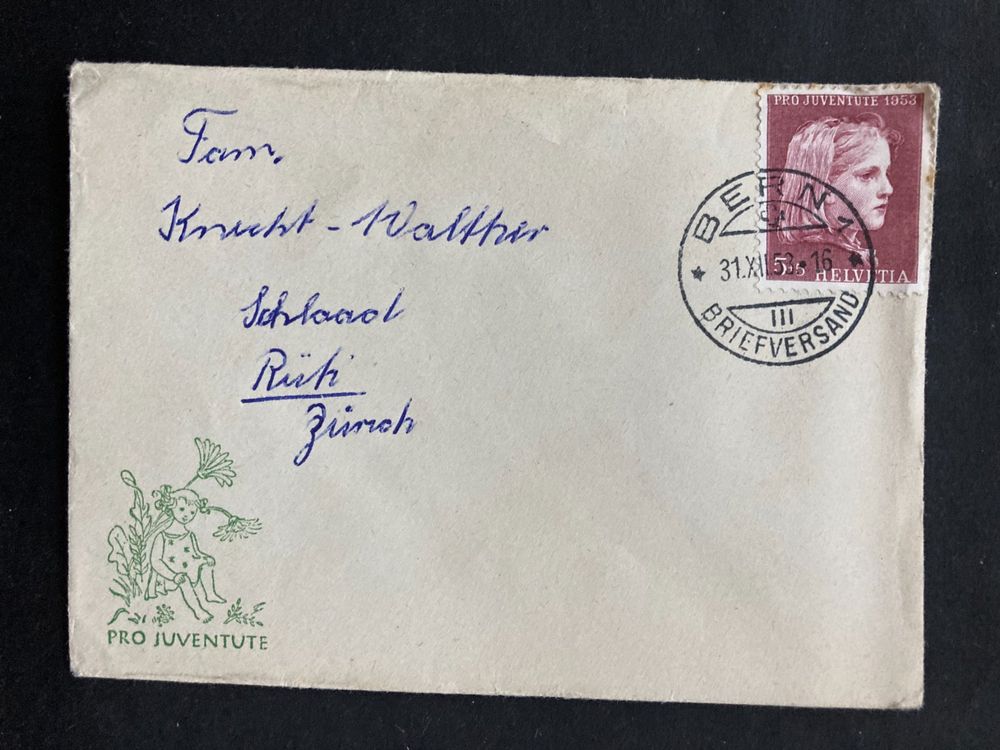 Fam.
Knecht-Walther
Schlaad
Rüti
Zürich
PRO JUVENTUTE 1953
5+5 HELVETIA
BERN 1
31.XII.53.-16
III
BRIEFVERSAND
PRO JUVENTUTE